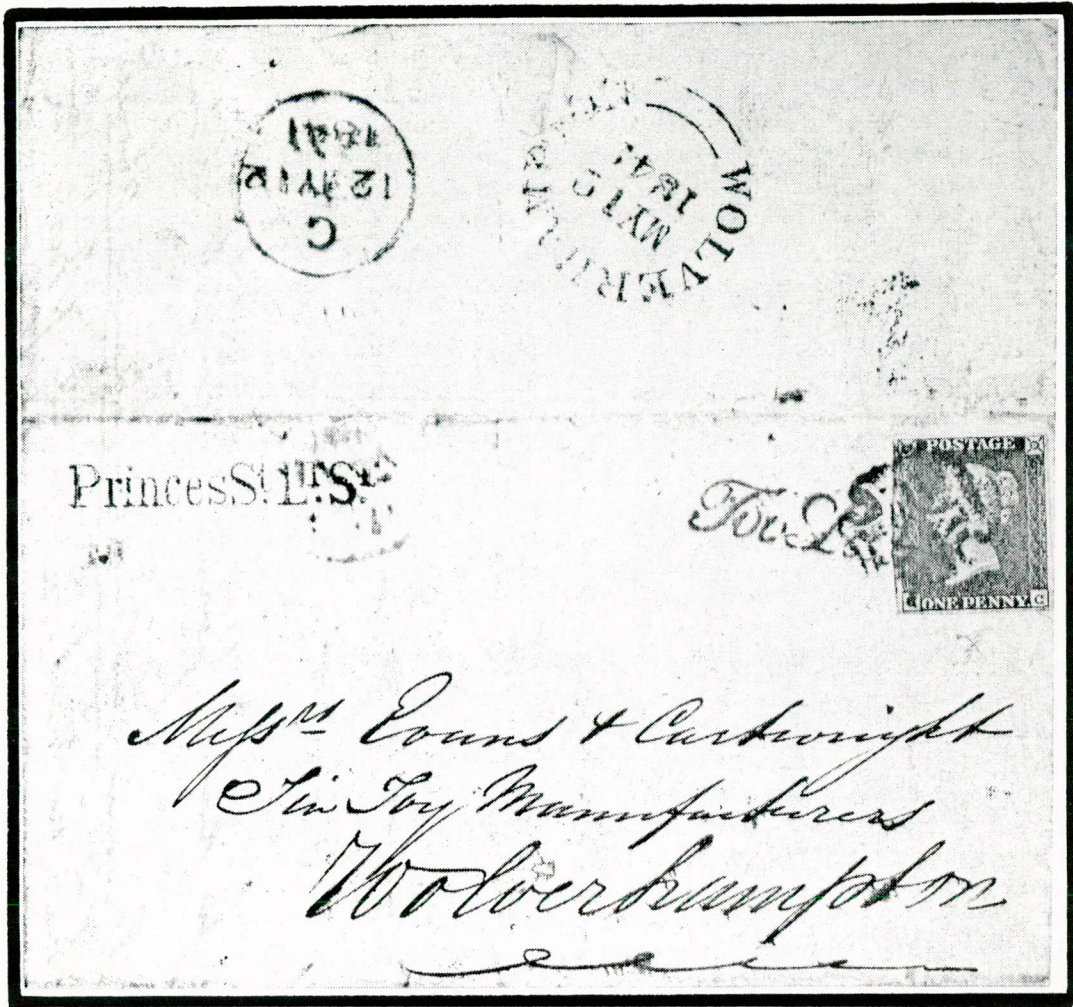 G
12 MY 12
1841
WOLVERHAMPTON
MY
184
Princes St L.S.
Too L
POSTAGE
ONE PENNY C
Messrs Evans & Cartwright
Tin Toy Manufacturers
Wolverhampton